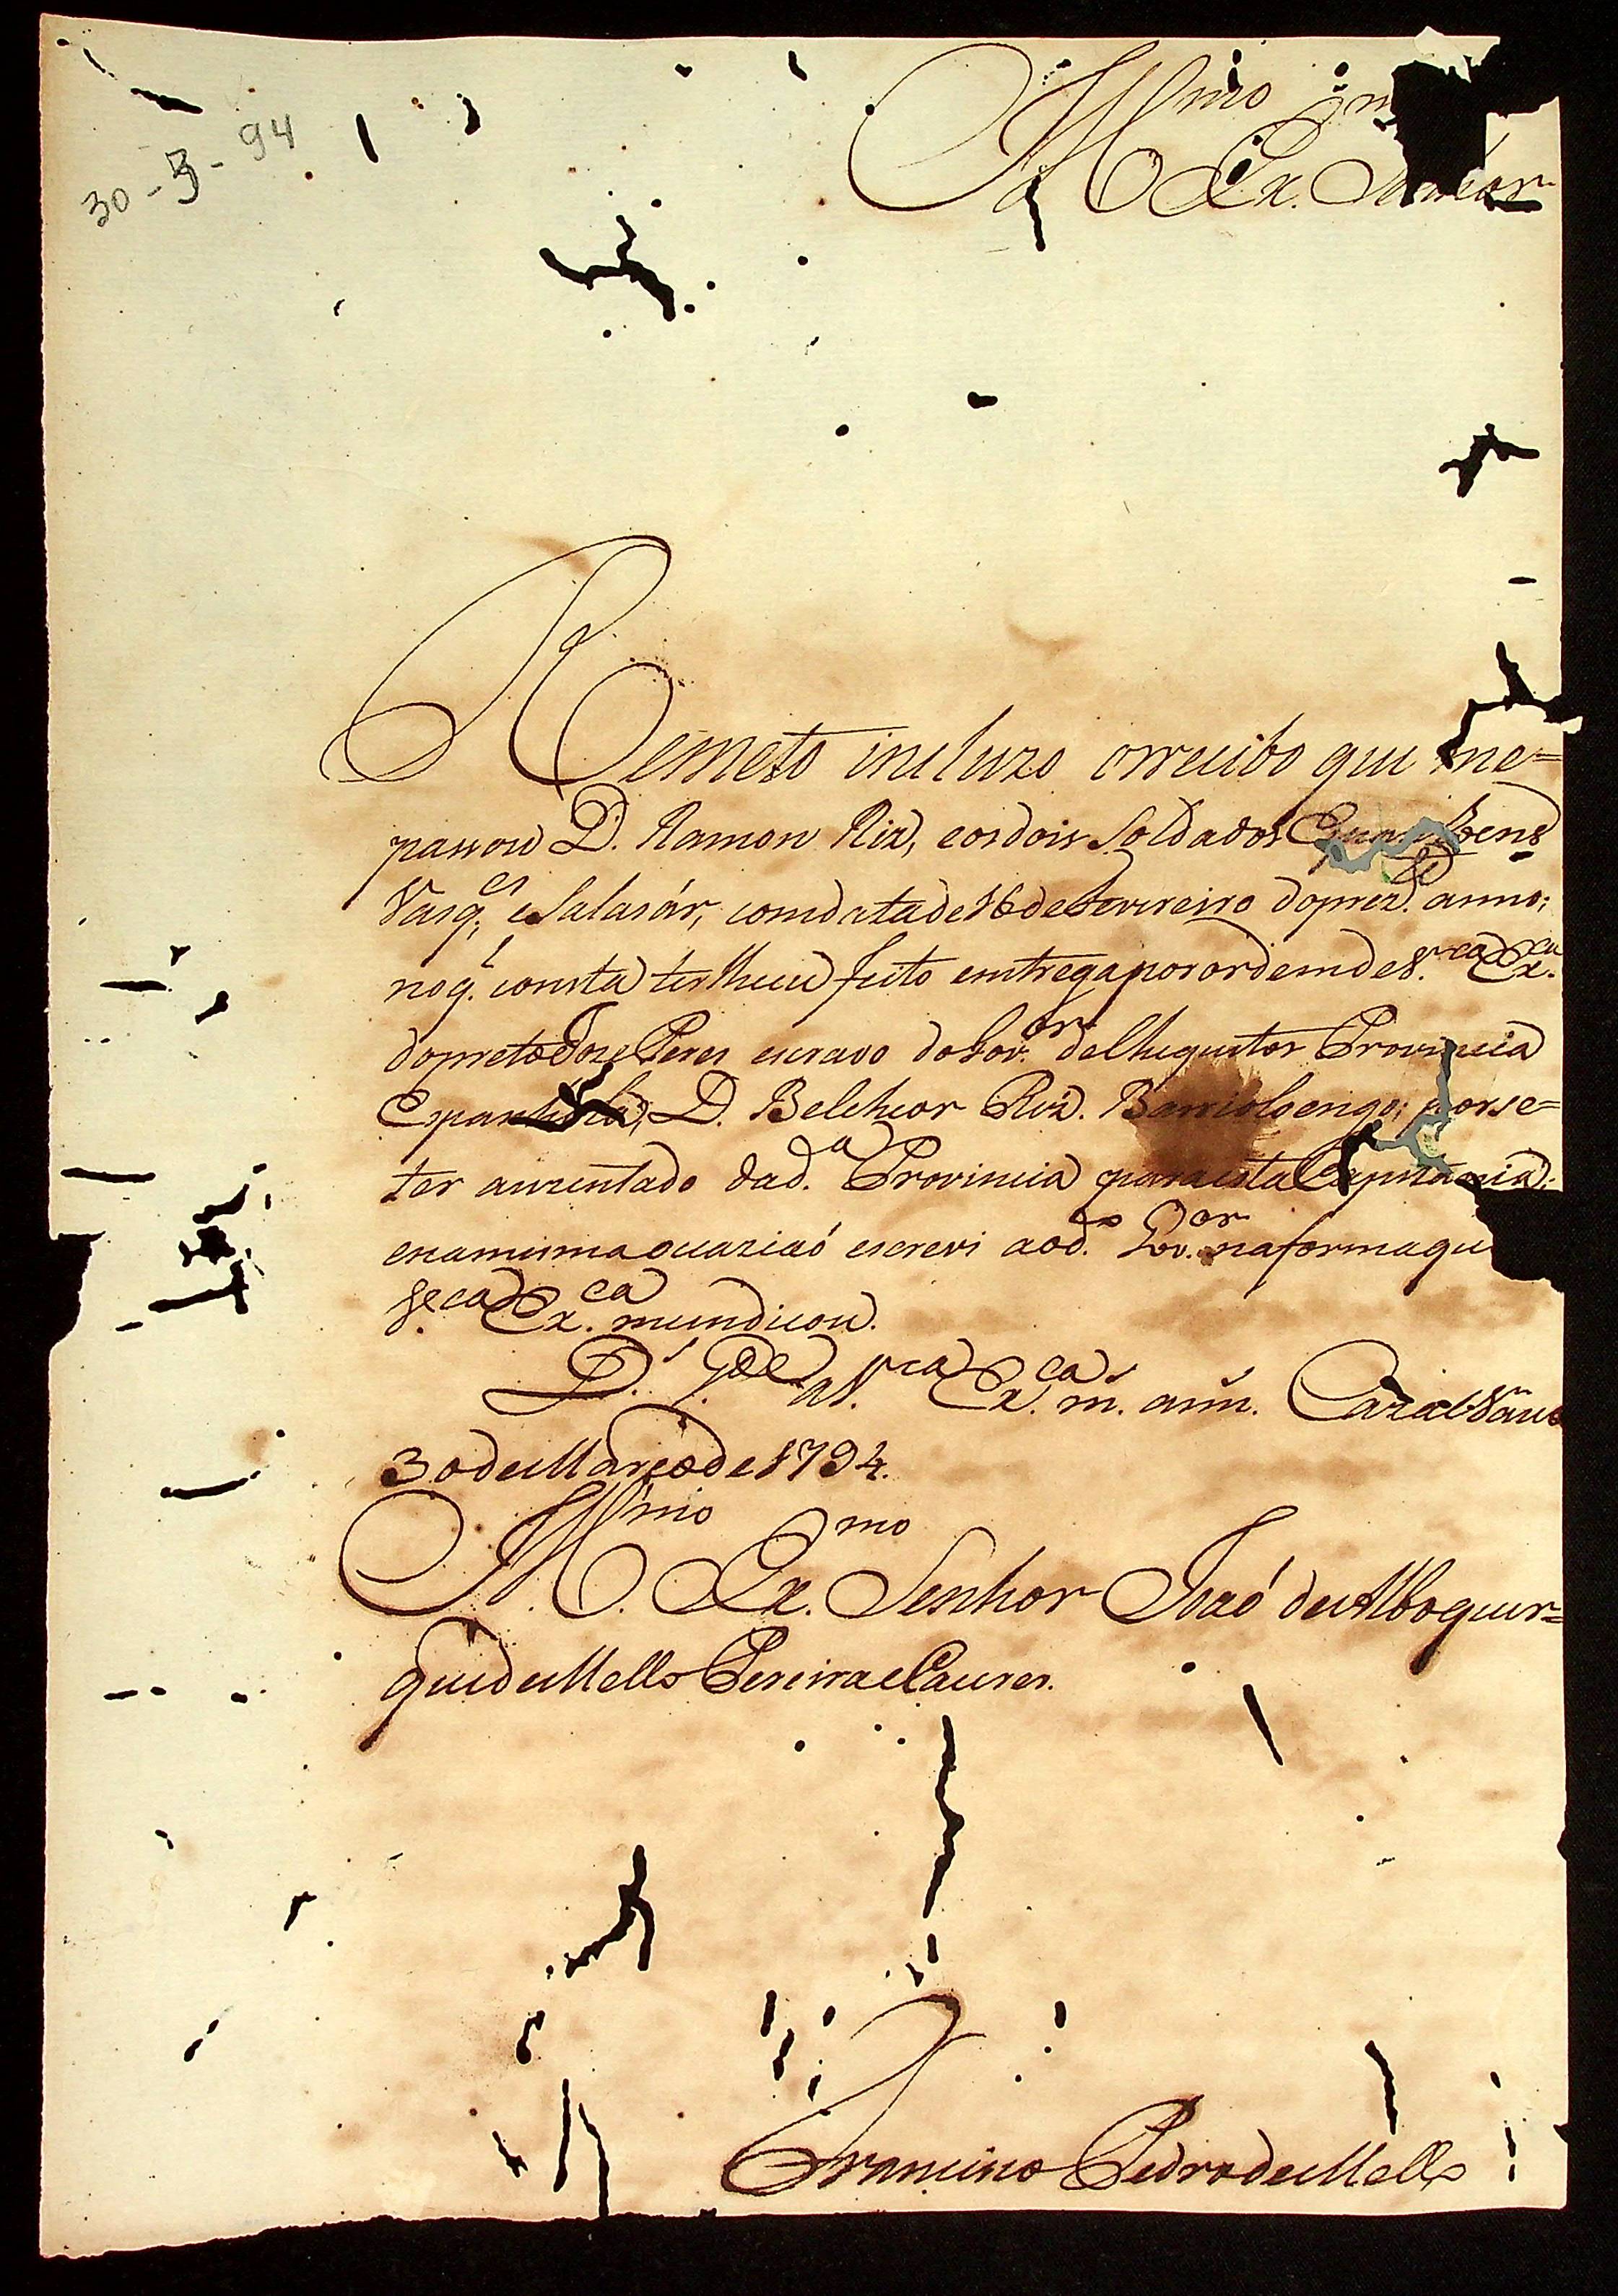 30-3-94
Ill.mo Ex.mo Senhor
Remeto incluzo orrecibo que me=
passou D. Ramon Riz, eosdois Soldados
Vasq.es, eSalasár, comdatade 16 deFevreiro doprez.de anno;
noq.' consta terlheeu feito emtrega porordemdeV.ca Ex.ca
dopreto Joze Peres escravo doGov.or delhequitos Provincia
Espanhola; D. Belchior Riz. Barriolsengo; porse=
ter auzentado dad.a Provincia paraesta Capitania;
enamesmaoucaziaó escrevi aod.o Gov.or naformaque
V.ca Ex.ca meindicou.
D.s g.de aV.ca Ex.ca m.s ann.s Cazal Vasco
30 deMarçode 1794.
Ill.mo Ex.mo Senhor Joaó deAlboquer=
quedeMello PereiraeCaceres.
Francisco PedrodeMello